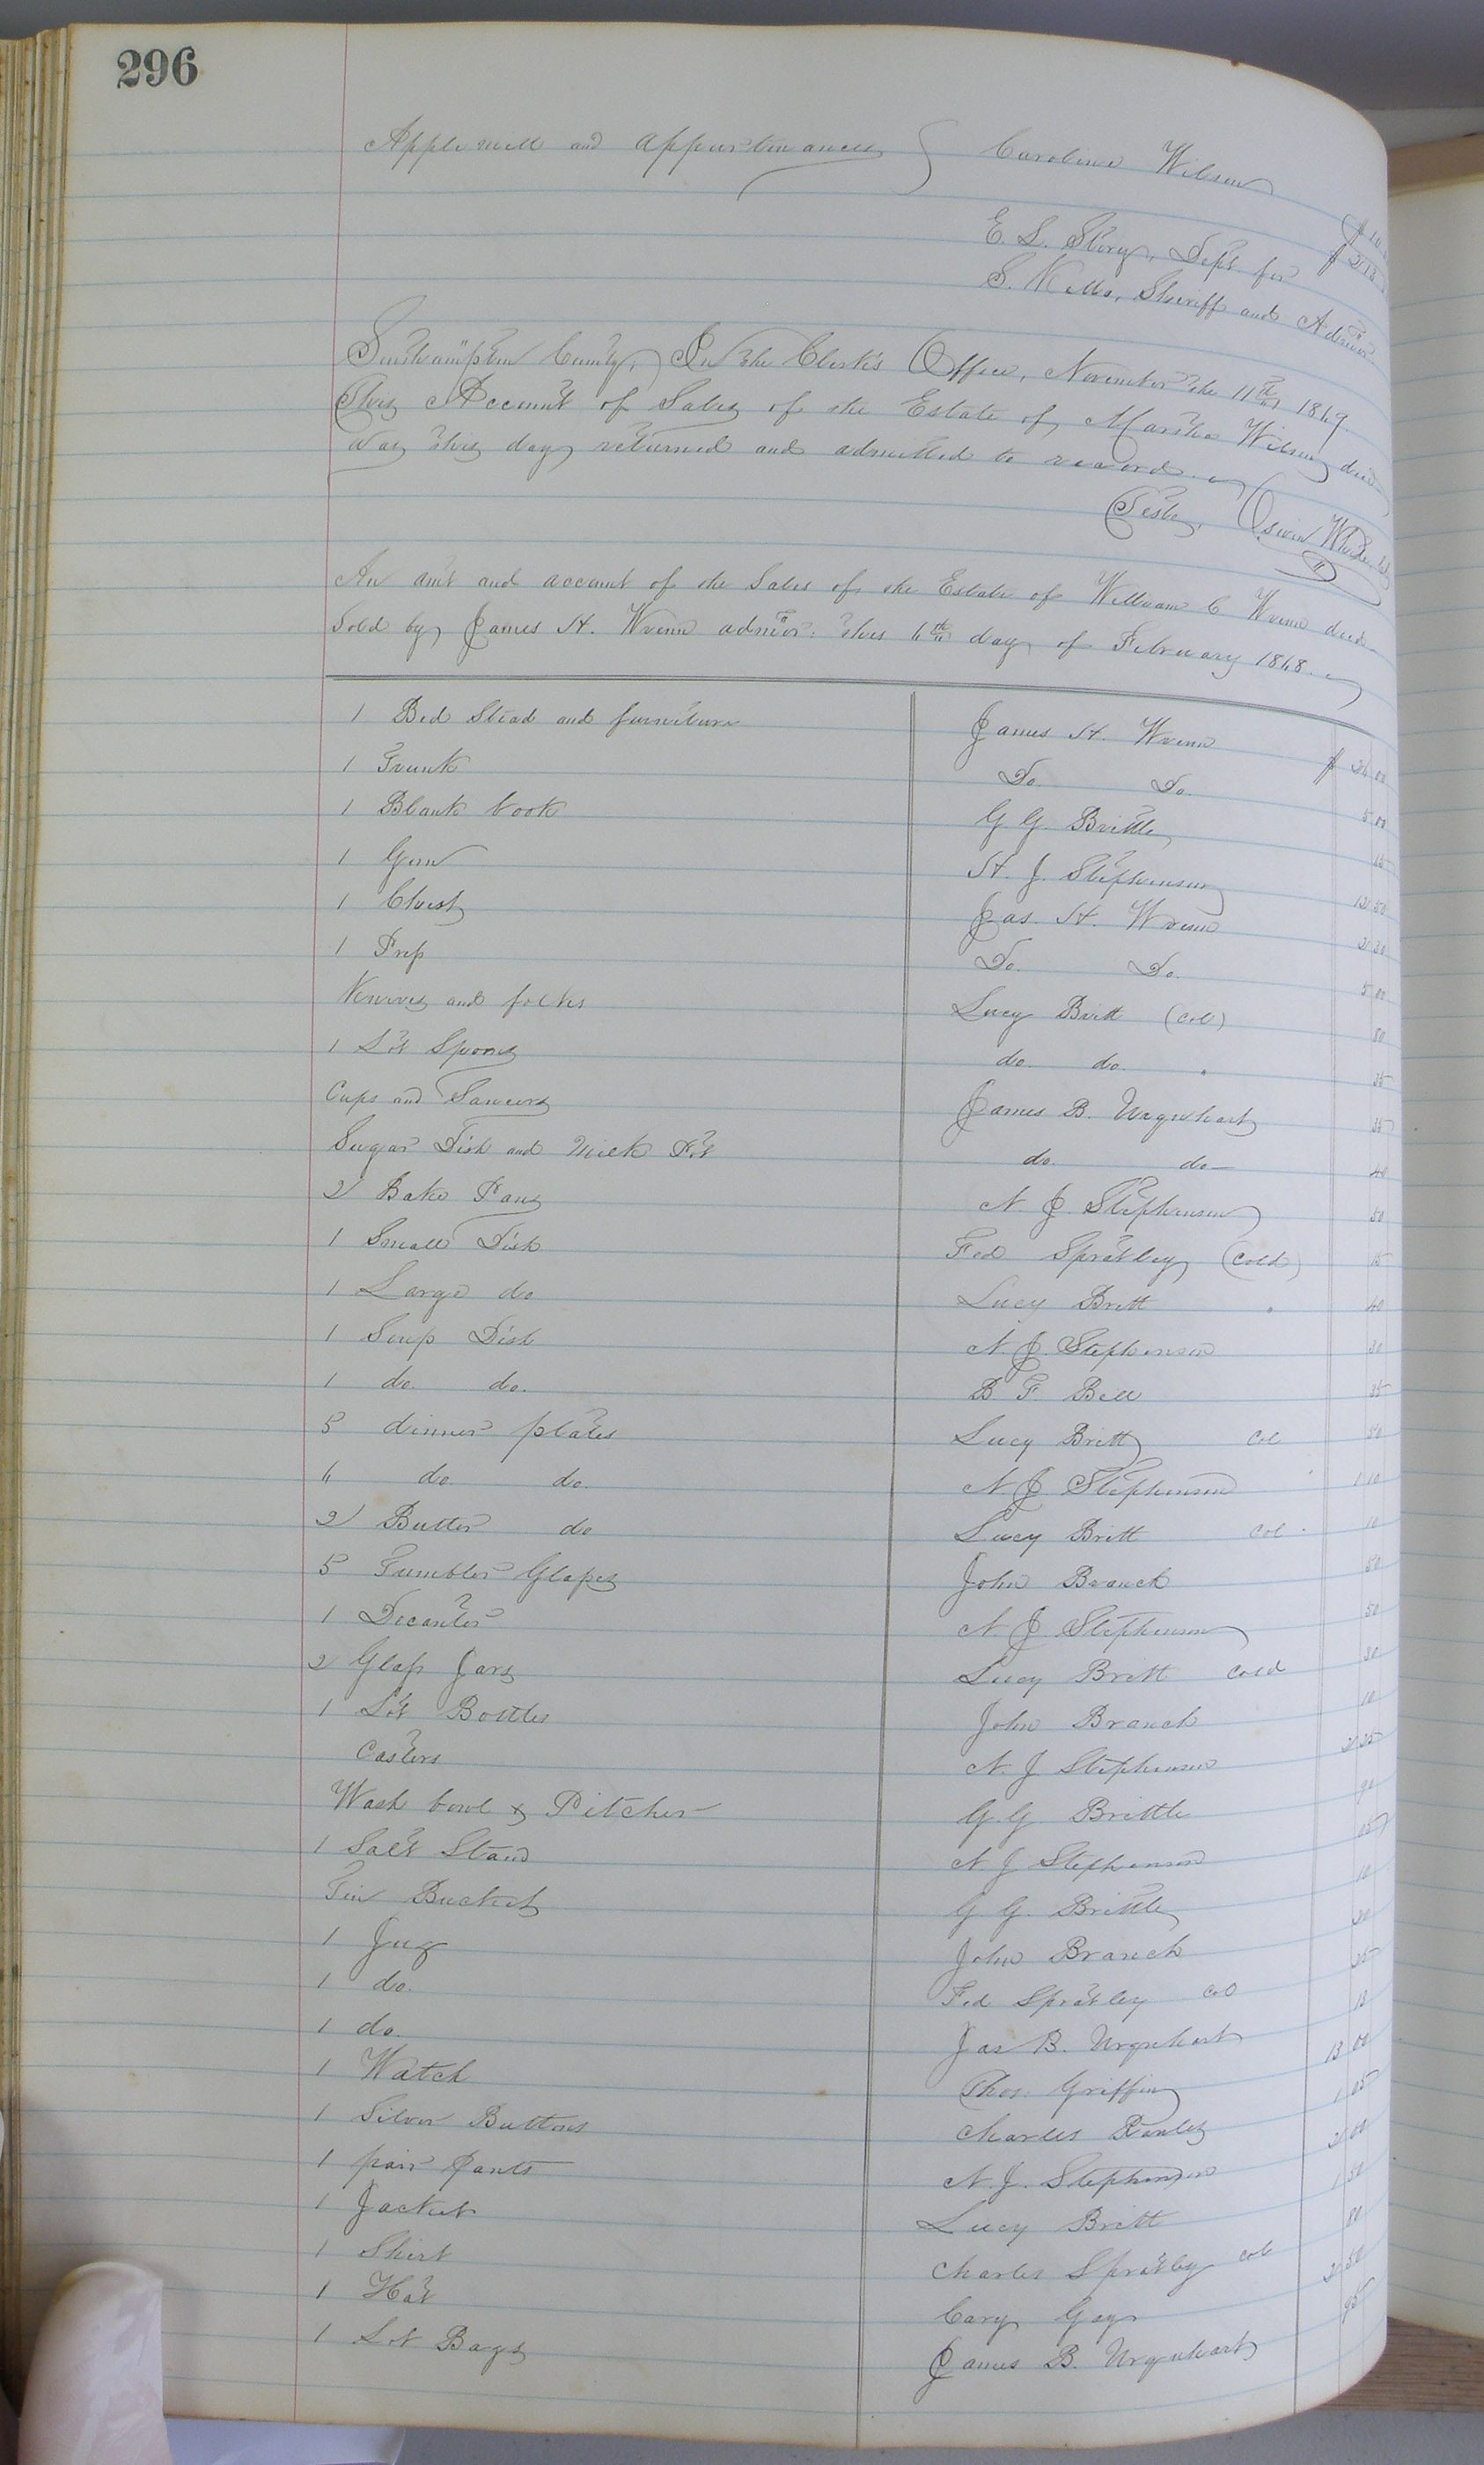 296
Apple mill and appurtenances } Caroline Wilson
E. S. Story, Dept for
S. Kello, Sheriff and Admor
Southampton County, In the Clerk's Office, November the 11th 1869
This Account of Sales of the Estate of Martha Wilson decd
was this day returned and admitted to record.
Teste, Oswin White
An amt and account of the Sales of the Estate of William C Wrenn decd
Sold by James H. Wrenn admor. this 6th day of February 1868.
1 Bed Stead and furniture James H. Wrenn $ 26 00
1 Trunk Do. Do. 5 00
1 Blank book G G. Brittle 15
1 Gun H. J. Stephenson 12 50
1 Chest Jas. H. Wrenn 2 30
1 Do. Do. 5 00
Knives and forks Lucy Britt (col) 80
1 Lot Spoons do. do. 35
Cups and Saucers James B. Urquhart 35
Sugar Dish and Milk Pot do. do 40
2 Bake Pans N J. Stephenson 50
1 Small Dish Fed Spratley (Cold) 15
1 Large do Lucy Britt 40
1 Soup Dish N. J. Stephenson 30
1 do. do. B F. Bell 35
5 dinner plates Lucy Britt col 50
6 do. do. N J Stephenson 1 10
2 Butter do Lucy Britt col 10
5 Tumbler Glasses John Branch 50
1 Decanter N. J. Stephenson 50
2 Glass Jars Lucy Britt cold 30
1 Lot Bottles John Branch 10
Casters N. J Stephenson 2 25
Wash bowl & Pitcher G. G. Brittle 90
1 Salt Stand N J Stephenson 05
Tin Bucket G G. Brittle 10
1 Jug John Branch 20
1 do. Fed Spratley col 25
1 do. Jas B. Urquhart 13
1 Watch Thos. Griffin 13 00
1 Silver Buttons Charles 1 05
1 pair Pants N. J. Stephenson 2 00
1 Jacket Lucy Britt 1 50
1 Shirt Charles Spratley col 80
1 Hat Cary Gay 2 50
1 Lot Bags James B. Urquhart 95